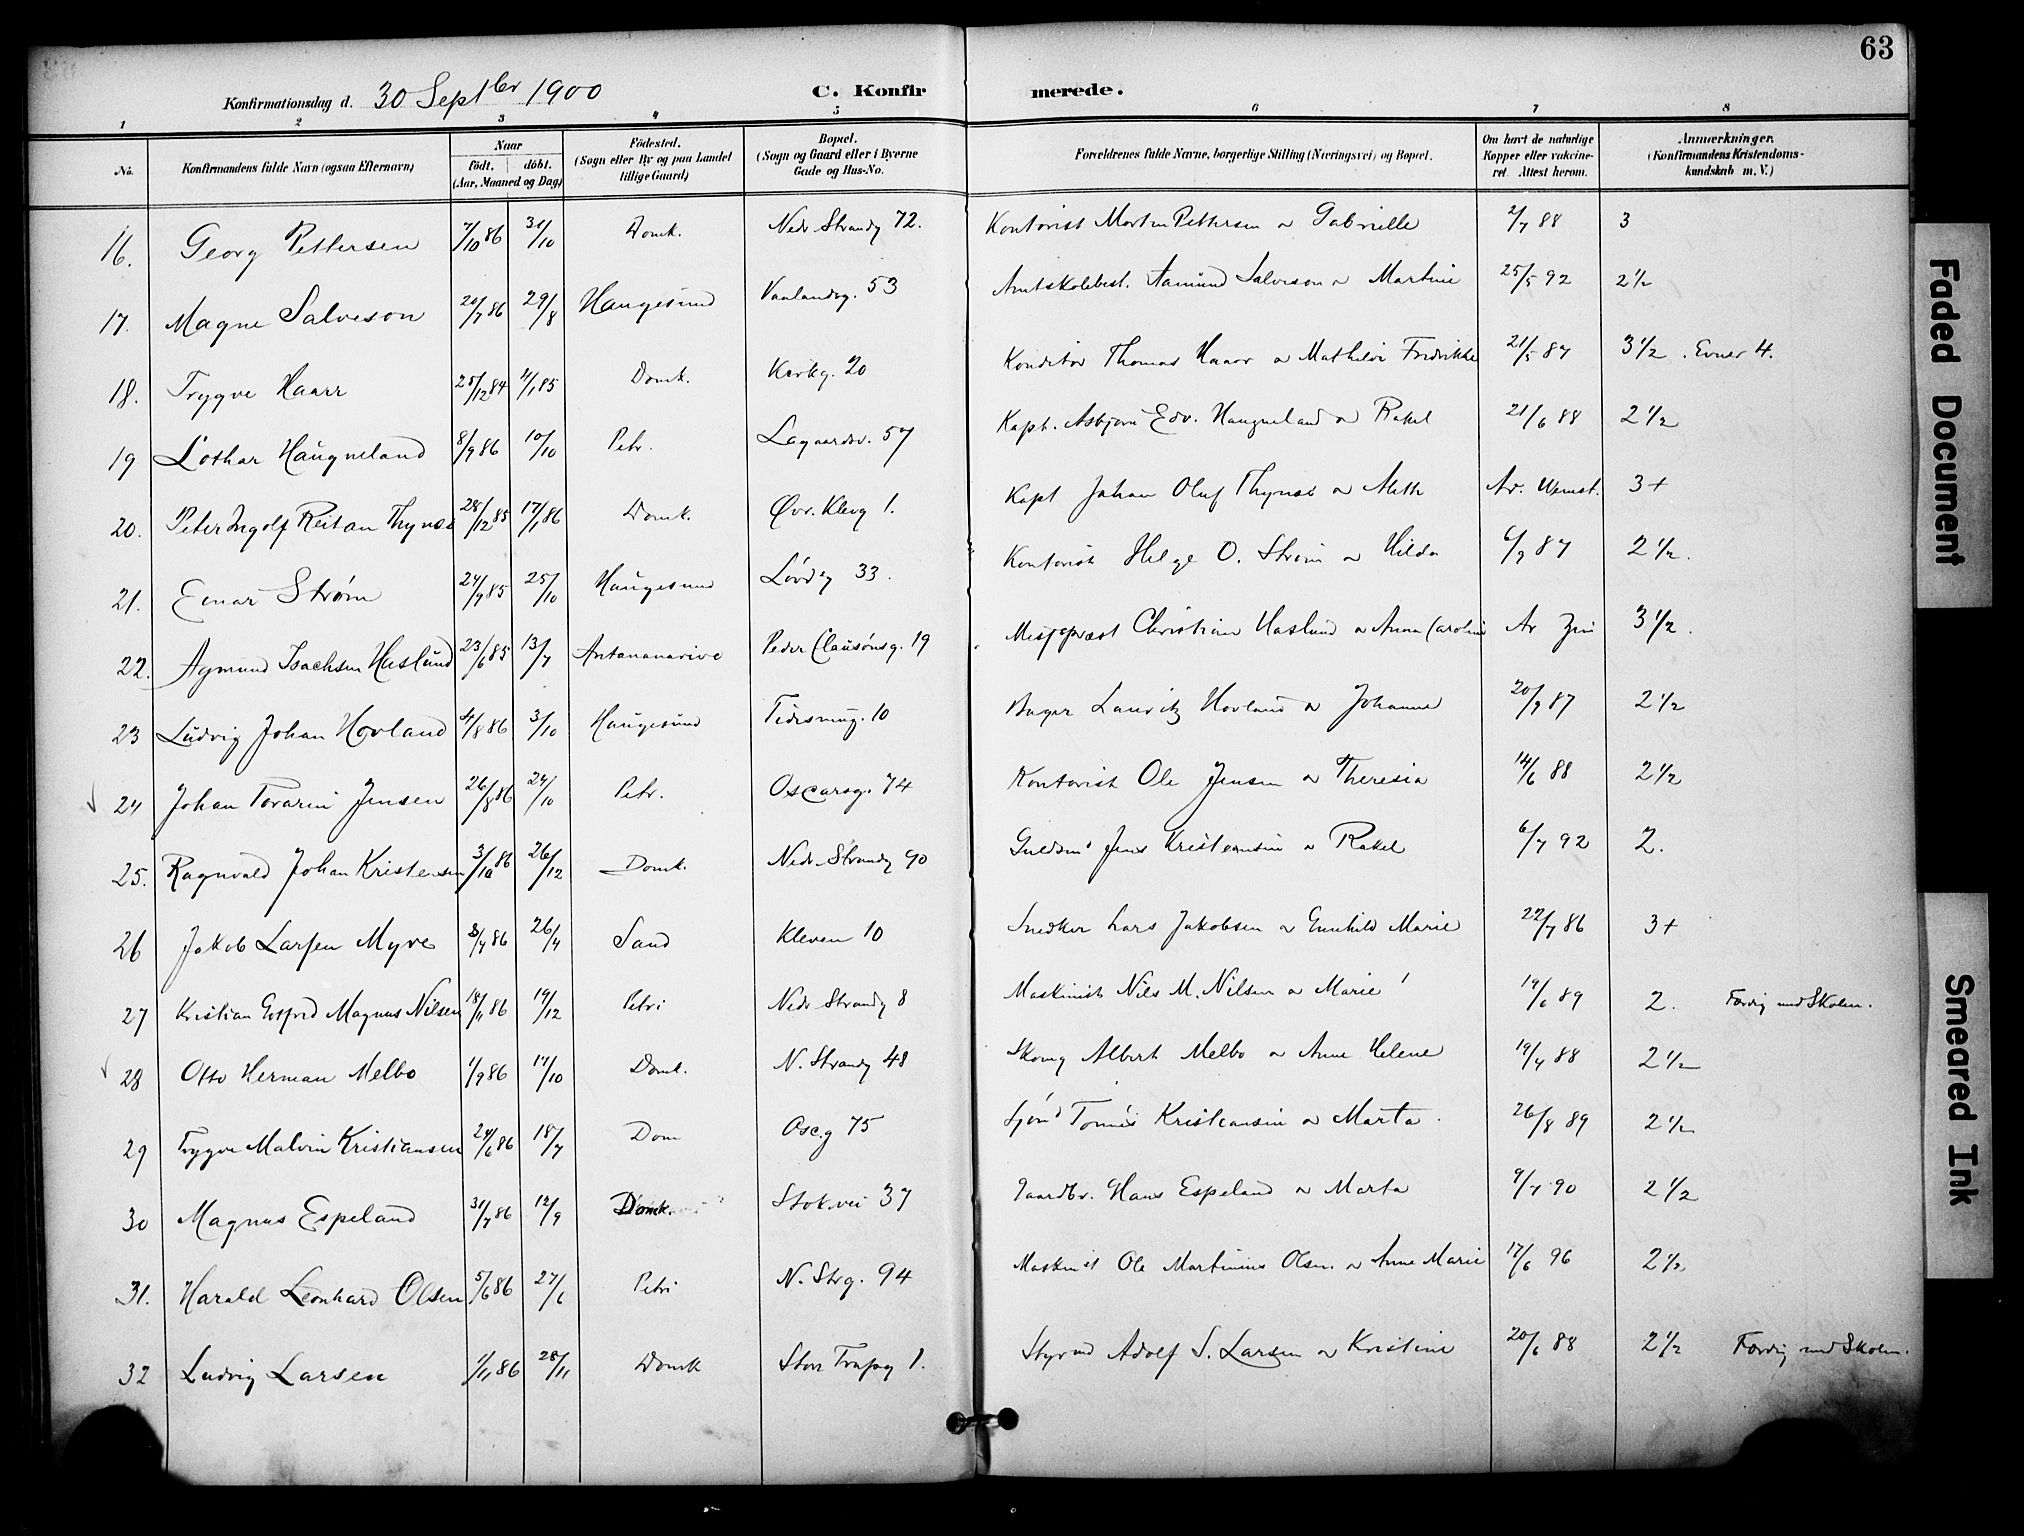 63
Konfirmationsdag d. 30 Septbr 1900 C. Konfirmerede.
1 2 3 4 5 6 7 8
No. Konfirmandens fulde Navn (ogsaa Efternavn) Naar födt. döbt. (Aar, Maaned og Dag) Födested. (Sogn eller By og paa Landet tillige Gaard) Bopæl. (Sogn og Gaard eller i Byerne Gade og Hus-No. Forældrenes fulde Navne, borgerlige Stilling (Næringsvei) og Bopæl. Om havt de naturlige Kopper eller vakcineret. Attest herom. Anmærkninger. (Konfirmandens Kristendomskundskab m. V.)
16. Georg Pettersen 7/10 86 31/10 Domk. Nedr. Strandg 72. Kontorist Morten Pettersen o Gabrielle 2/7 88 3
17. Magne Salveson 20/7 86 29/8 Haugesund Vaalandsg. 53 Amtskolebest. Aamund Salveson o Martine 25/5 92 2½
18. Trygve Haarr 25/12 84 4/1 85 Domk. Kirkg. 20 Konditor Thomas Haarr o Mathilde Fredrikke 21/5 87 3½. Evner 4.
19 Lothar Haugneland 8/9 86 10/10 Petr. Lagaardsv. 57 Kapt. Asbjørn Edv. Haugneland o Rakel 21/6 88 2½
20. Peter Ingolf Reitan Thynæs 28/12 85 17/1 86 Domk. Øvr. Klevg 1. Kapt Johan Oluf Thynæs o Aleth Ar. 3+
21. Einar Strøm 24/9 85 25/10 Haugesund Løvdg 33. Kontorist Helge O. Strøm o Hilda 6/9 87 2½.
22. Agmund Isachsen Haslund 23/6 85 13/7 Antananarivo Peder Clausønsg. 19 Missjspræst Christian Haslund o Anna Caroline Ar 3½.
23 Ludvig Johan Hovland 4/8 86 3/10 Haugesund Tidemansg. 10 Bager Lauritz Hovland o Johanne 20/9 87 2½
24 Johan Tovarin Jensen 26/8 86 24/10 Petr. Oscarsg. 74 Kontorist Ole Jensen o Theresia 14/6 88 2½
25. Ragnvald Johan Kristensen 3/10 86 26/12 Domk. Nedr. Strandg 90 Guldsm. Jens Kristensen o Rakel 6/7 92 2.
26 Jakob Larsen Myvre 3/4 86 26/4 Sand Kleven 10 Snedker Lars Jakobsen o Gunhild Marie 22/7 86 3+
27 Kristian Gotfred Magnus Nilsen 18/11 86 19/12 Petri Nedr Strandg 8 Maskinist Nils M. Nilsen o Marie 19/6 89 2. Færdig med Skolen.
28 Otto Herman Melbo 1/9 86 17/10 Domk. N. Strandg 48 Skomg Albert Melbo o Anne Helene 19/4 88 2½
29 Trygve Malvin Kristiansen 24/6 86 18/7 Dom Oscg 75 Sjømd Tønnes Kristiansen o Marta. 26/8 89 2½
30 Magnus Espeland 31/7 86 12/9 Domk. Stokvei 37 Gaardbr. Hans Espeland o Marta 9/7 90 2½
31. Harald Leonhard Olsen 5/6 86 27/6 Petri N. Strg. 94 Maskinist Ole Martinius Olsen o Anne Marie 17/6 96 2½
32 Ludvig Larsen 1/11 86 28/11 Domk Store Trapg 1. Styrmd Adolf S. Larsen o Kristine 20/6 88 2½ Færdig med Skolen.
Faded Document
Smeared Ink